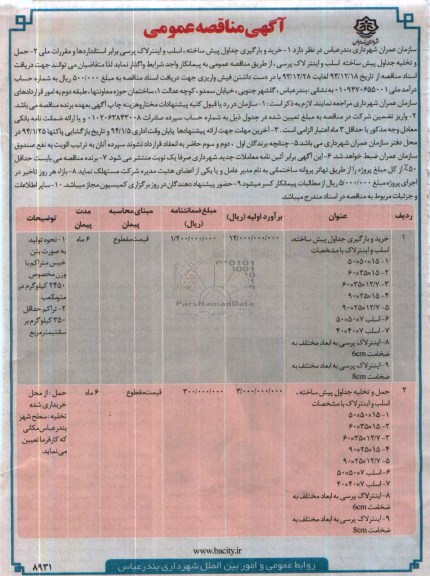 آگهی مناقصه عمومی
سازمان عمران شهرداری بندرعباس در نظر دارد ۱- خرید و بارگیری جداول پیش ساخته، اسلب و اینترلاک پرسی برابر استانداردها و مقررات ملی ۲- حمل
و تخلیه جداول پیش ساخته، اسلب و اینترلاک پرسی، از طریق مناقصه عمومی به پیمانکار واجد شرایط واگذار نماید لذا متقاضیان می توانند جهت دریافت
اسناد مناقصه از تاریخ ۹۳/۱۲/۱۸ لغایت ۹۳/۱۲/۲۸ با در دست داشتن فیش واریزی جهت دریافت اسناد مناقصه به مبلغ ۵۰۰/۰۰۰ ریال به شماره حساب
درآمد ملی ۰۱۰۹۴۷۰۶۵۵۰۰۱ به نشانی: بندرعباس، گلشهر جنوبی، خیابان سعدی، کوچه عدالت ۱، ساختمان حوزه معاونتها، طبقه دوم به امور قراردادهای
سازمان عمران شهرداری مراجعه نمایند. لازم به ذکر است: ۱- سازمان در رد یا قبول کلیه پیشنهادات مختار و هزینه چاپ آگهی بعهده برنده مناقصه می باشد
۲- واریز تضمین شرکت در مناقصه به مبلغ تعیین شده در جدول ذیل به شماره حساب سپرده صادرات ۰۱۰۲۰۶۳۸۴۳۰۰۸ و یا ارائه ضمانت نامه بانکی
معادل وجه مذکور با حداقل ۳ ماه اعتبار الزامی است. ۳- آخرین مهلت جهت ارائه پیشنهادها پایان وقت اداری ۹۴/۱/۵ و تاریخ بازگشایی پاکتها ۹۴/۱/۲۵ در
محل دفتر سازمان عمران شهرداری می باشد ۵- چنانچه برندگان اول، دوم و سوم حاضر به انعقاد قرارداد نشوند سپرده آنان به ترتیب الویت به نفع صندوق
سازمان عمران ضبط خواهد شد. ۶- این آگهی برابر آئین نامه معاملات جدید شهرداری صرفا یک نوبت منتشر می شود ۷- برنده مناقصه می بایست حداقل
۵۰٪ از کل مبلغ پروژه را از طریق تهاتر پروانه ساختمانی به نام مدیر عامل و یا یکی از اعضای هئیت مدیره شرکت مستهلک نماید ۸- بازاء هر روز تاخیر در
اجرای پروژه مبلغ ۵/۰۰۰/۰۰۰ ریال از مطالبات پیمانکار کسر میشود ۹- حضور پیشنهاد دهندگان در روز برگزاری کمیسیون مجاز میباشد. ۱۰- سایر اطلاعات
و جزئیات مربوط به مناقصه در اسناد مندرج میباشد
ردیف عنوان برآورد اولیه (ریال) مبلغ ضمانتنامه (ریال) مبنای محاسبه پیمان مدت پیمان توضیحات
۱ خرید و بارگیری جداول پیش ساخته، ۱۴/۰۰۰/۰۰۰/۰۰۰ ۱/۲۰۰/۰۰۰/۰۰۰ قیمت مقطوع ۶ ماه ۱- نحوه تولید
اسلب و اینترلاک با مشخصات به صورت بتن
۱- ۱۵×۵۰×۵۰ خیس متراکم با
۲- ۱۵×۳۵×۶۰ وزن مخصوص
۳- ۱۲/۷×۳۵×۶۰ ۲۴۵۰ کیلوگرم در
۴- ۱۵×۲۵×۹۰ مترمکعب
۵- ۱۲/۷×۲۵×۹۰ ۲- تراکم حداقل
۶- اسلب ۷×۵۰×۵۰ ۳۵۰ کیلوگرم بر
۷- اسلب ۷×۴۰×۴۰ سانتیمتر مربع
۸- اینترلاک پرسی به ابعاد مختلف به
ضخامت 6cm
۹- اینترلاک پرسی به ابعاد مختلف به
ضخامت 8cm
ParsNamadData
۲ حمل و تخلیه جداول پیش ساخته، ۳/۰۰۰/۰۰۰/۰۰۰ ۳۰۰/۰۰۰/۰۰۰ قیمت مقطوع ۶ ماه حمل: از محل
اسلب و اینترلاک با مشخصات خریداری شده
۱- ۱۵×۵۰×۵۰ تخلیه: سطح شهر
۲- ۱۵×۳۵×۶۰ بندرعباس مکانی
۳- ۱۲/۷×۳۵×۶۰ که کارفرما تعیین
۴- ۱۵×۲۵×۹۰ می نماید
۵- ۱۲/۷×۲۵×۹۰
۶- اسلب ۷×۵۰×۵۰
۷- اسلب ۷×۴۰×۴۰
۸- اینترلاک پرسی به ابعاد مختلف به
ضخامت 6cm
۹- اینترلاک پرسی به ابعاد مختلف به
ضخامت 8cm
www.bacity.ir
روابط عمومی و امور بین الملل شهرداری بندرعباس
۸۹۳۱